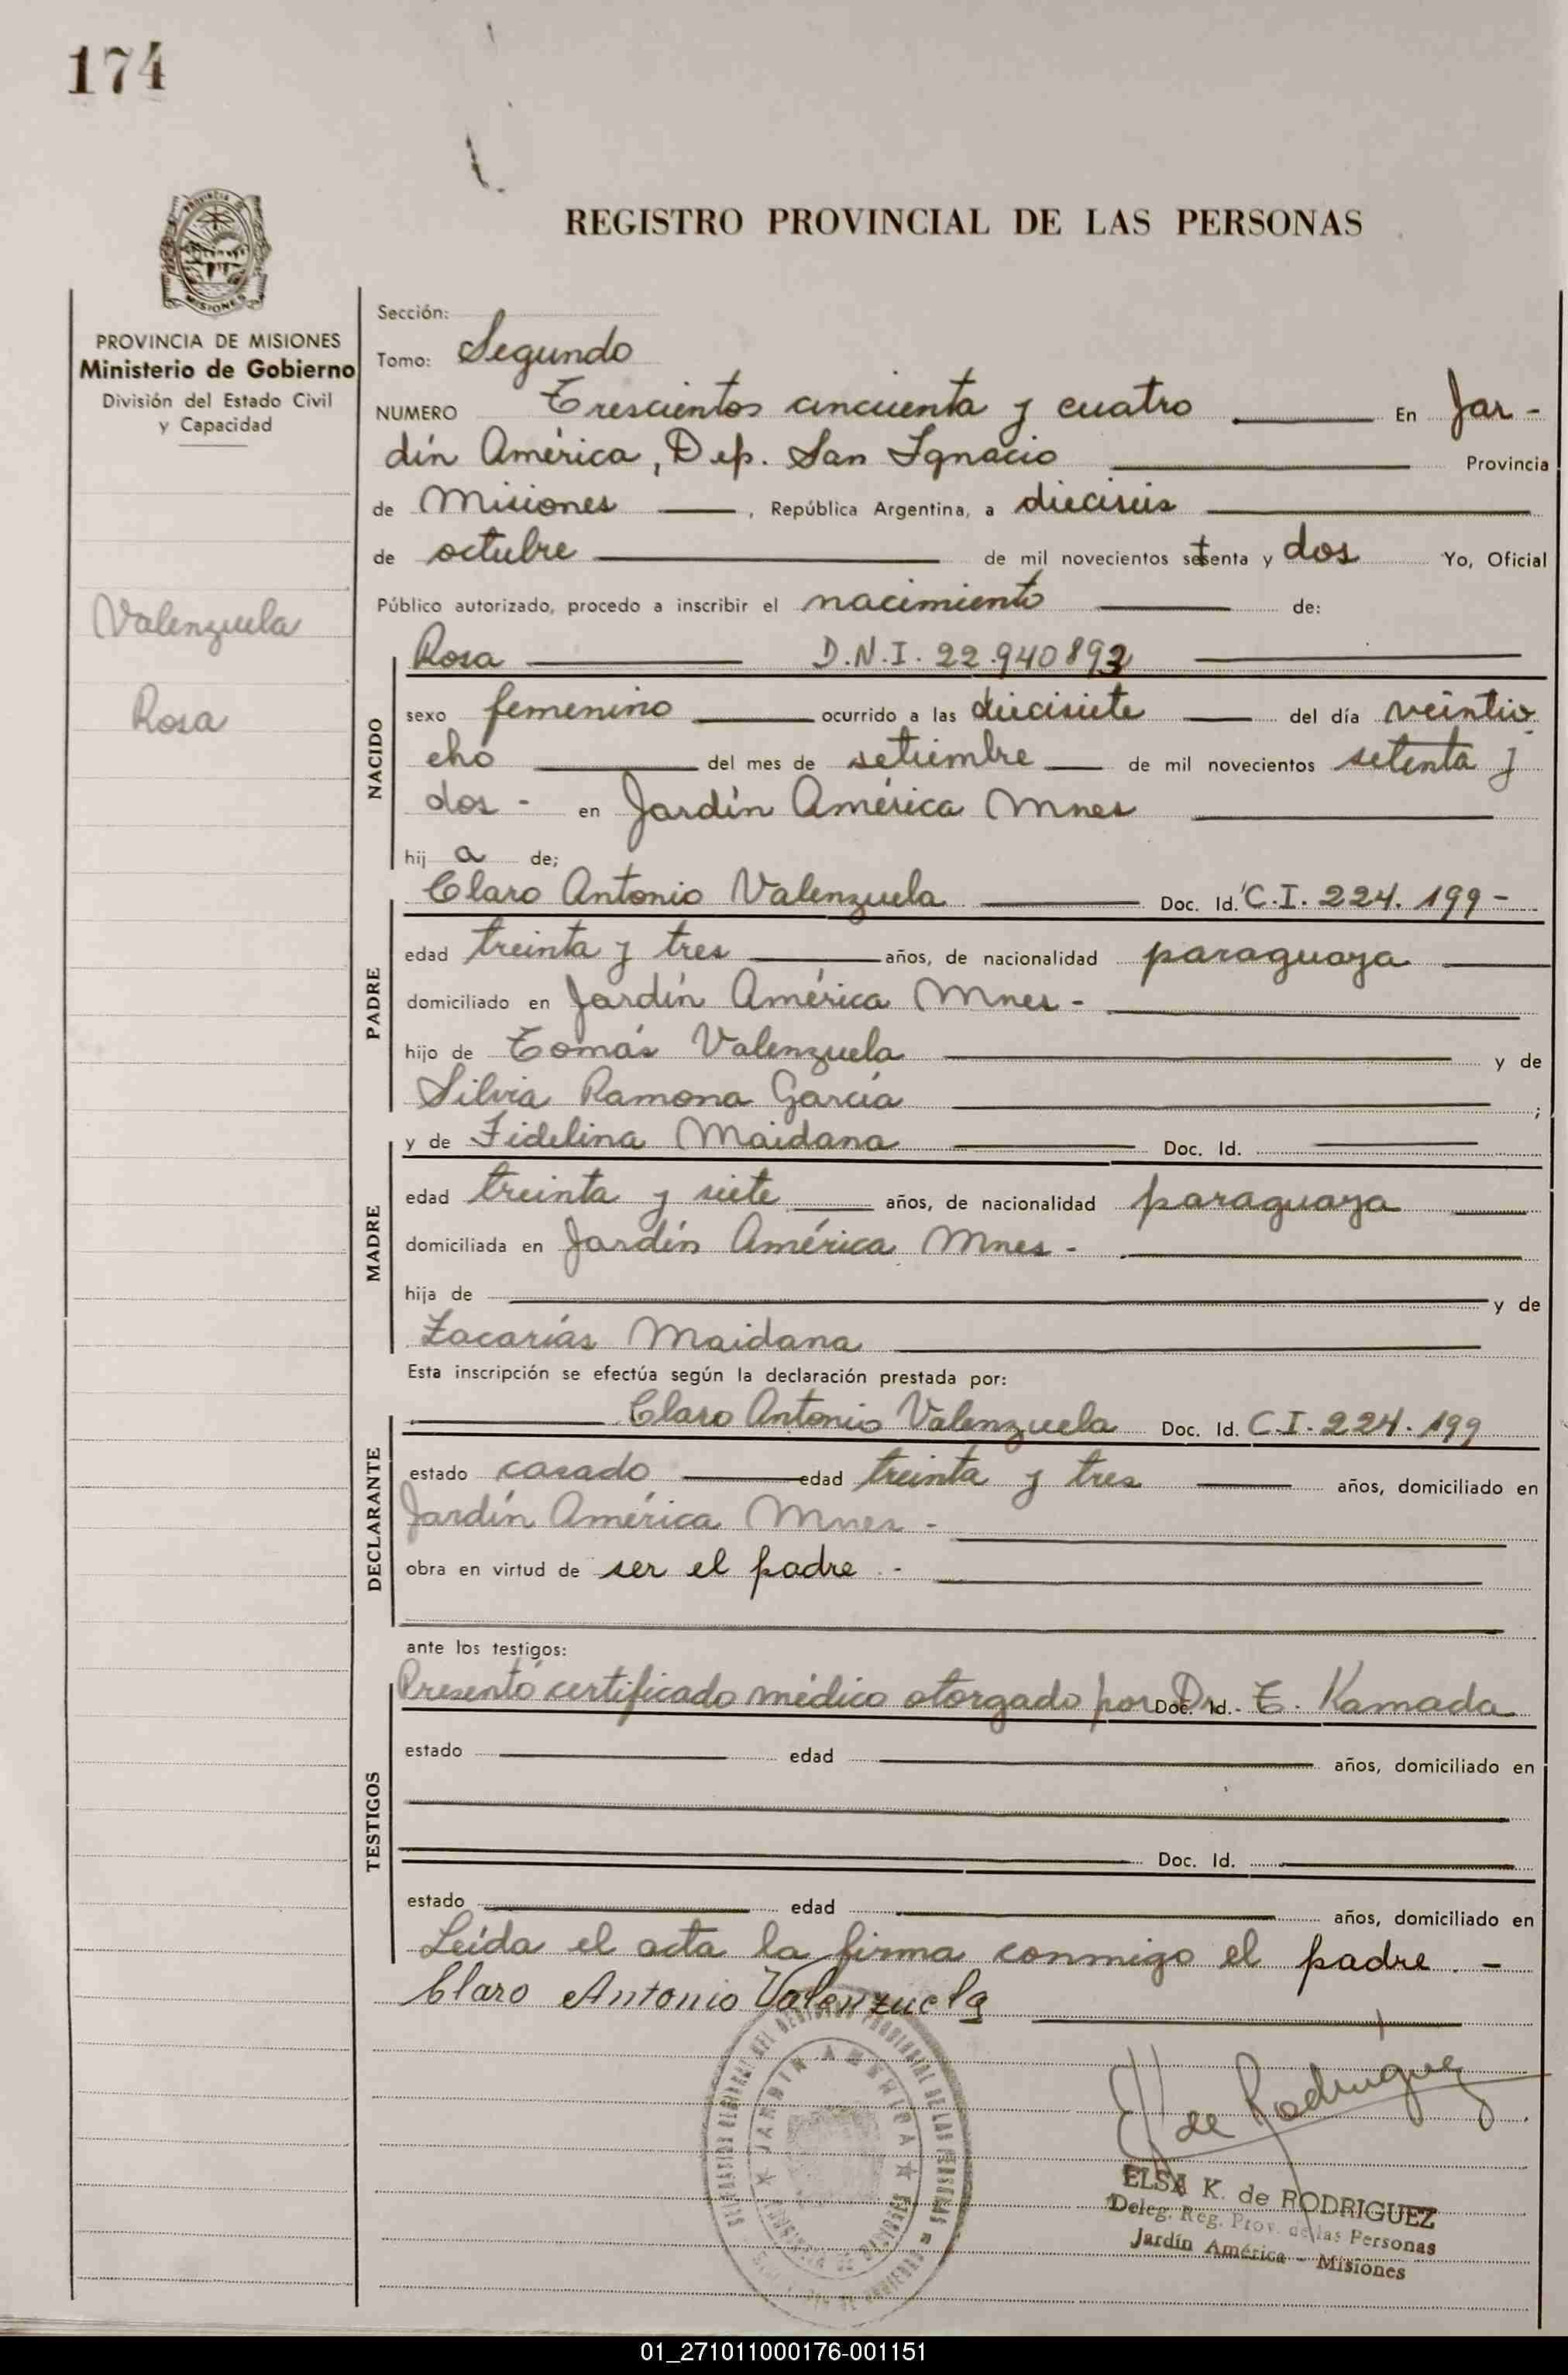 174
REGISTRO PROVINCIAL DE LAS PERSONAS
PROVINCIA DE MISIONES
Ministerio de Gobierno
División del Estado Civil
y Capacidad
Valenzuela
Rosa
Sección:
Tomo: Segundo
NUMERO Trescientos cincuenta y cuatro En Jar-
dín América, Dep. San Ignacio Provincia
de Misiones, República Argentina, a dieciseis
de octubre de mil novecientos setenta y dos Yo, Oficial
Público autorizado, procedo a inscribir el nacimiento de:
NACIDO
Rosa D.N.I. 22.940893
sexo femenino ocurrido a las diecisiete del día veintio
cho del mes de setiembre de mil novecientos setenta y
dos - en Jardín América Mnes
hij a de;
PADRE
Claro Antonio Valenzuela Doc. Id. C.I. 224.199-
edad treinta y tres años, de nacionalidad paraguaya
domiciliado en Jardín América Mnes-
hijo de Tomás Valenzuela y de
Silvia Ramona García ;
MADRE
y de Fidelina Maidana Doc. Id.
edad treinta y siete años, de nacionalidad paraguaya
domiciliada en Jardín América Mnes-
hija de y de
Zacarías Maidana
Esta inscripción se efectúa según la declaración prestada por:
DECLARANTE
Claro Antonio Valenzuela Doc. Id. C.I. 224.199
estado casado edad treinta y tres años, domiciliado en
Jardín América Mnes-
obra en virtud de ser el padre.-
ante los testigos:
TESTIGOS
Presentó certificado médico otorgado por Dr. Doc. Id. T. Kamada
estado edad años, domiciliado en
Doc. Id.
estado edad años, domiciliado en
Leída el acta la firma conmigo el padre.-
Claro Antonio Valenzuela
JARDIN AMERICA
E. de Rodriguez
ELSA K. de RODRIGUEZ
Deleg. Reg. Prov. de las Personas
Jardín América - Misiones
01_271011000176-001151